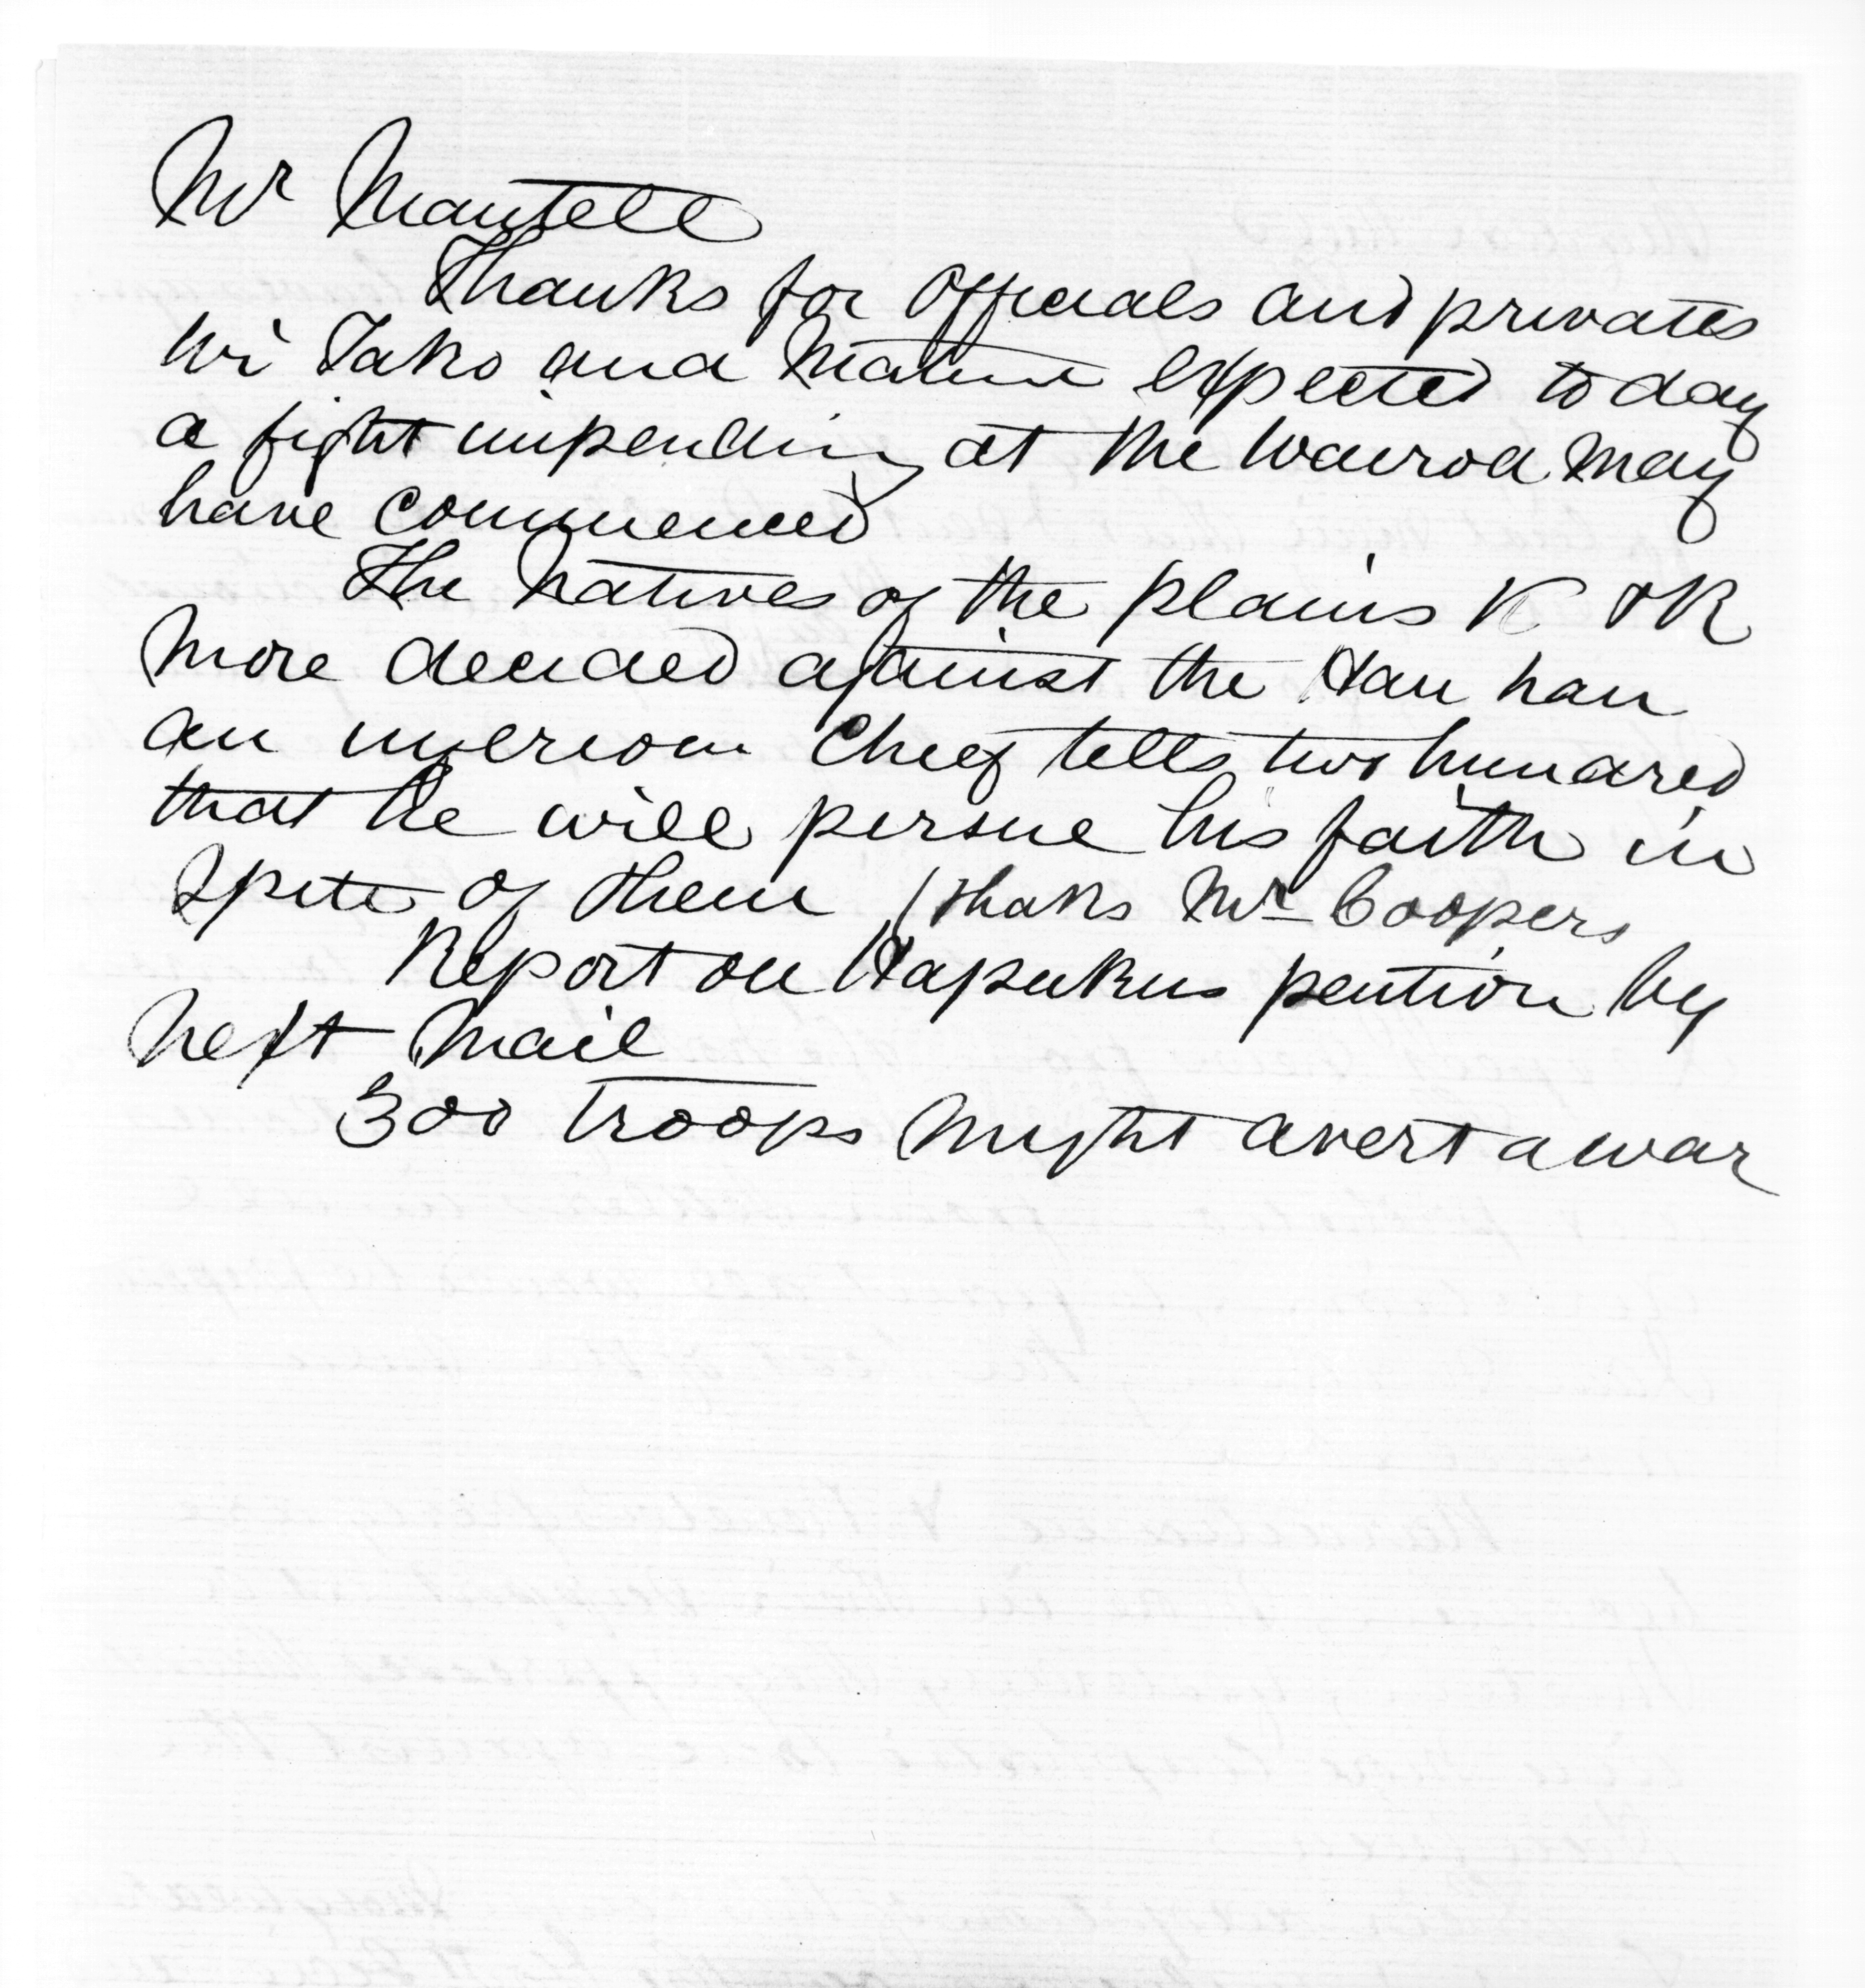 Mr Mantell
Thanks for Officials and privates
Wi Tako and Matene expected to day
a fight impending at the Wairoa may
have commenced
The Natives of the plains K & R
more decided against the Hau hau
an inferior Cheif tells two hundred
that he will persue his faith in
spite of them (thats Mr Coopers
Report on Hapukus petition by
next Mail
300 troops might avert a war